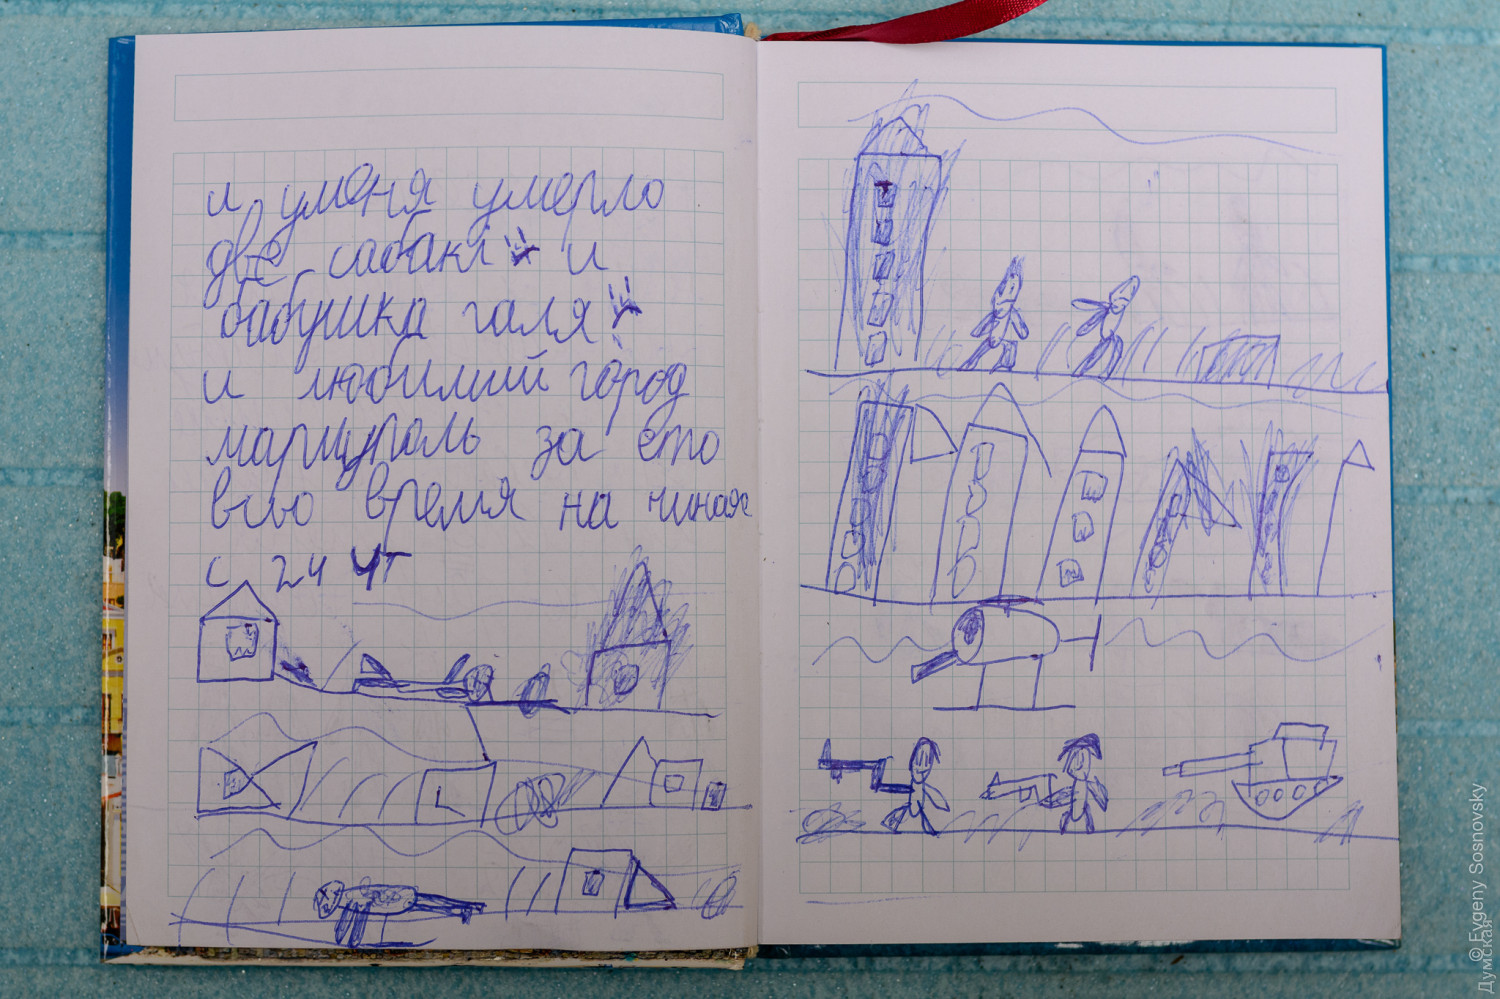 и уменя умерло
две сабакі и
бабушка галя
и любимий город
мариуполь за ето
всьо время на чиная
с 24 чт
© Evgeny Sosnovsky
Думская